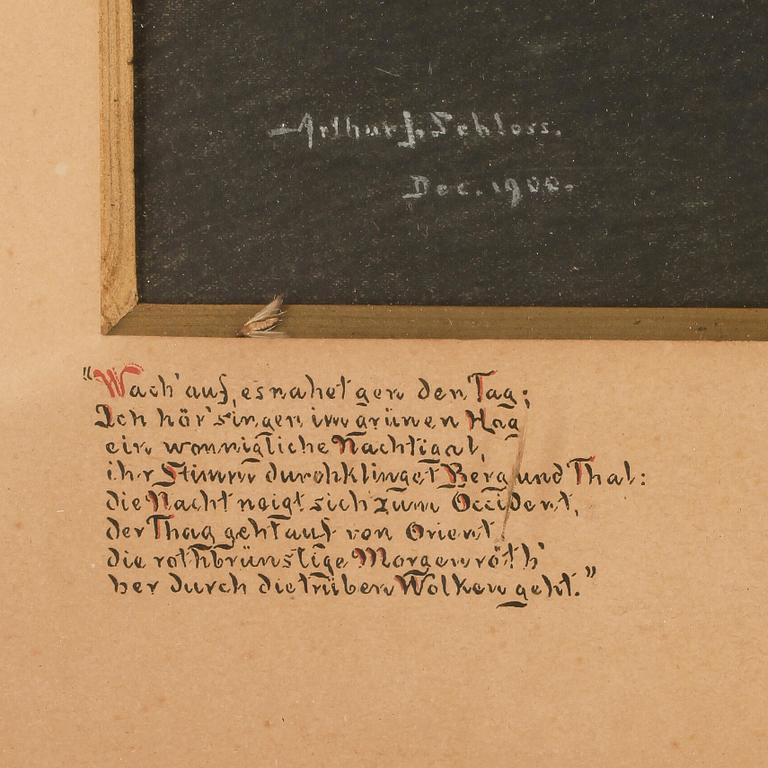 Arthur J. Schloss.
Dec. 1900.
"Wach' auf, es nahet gen den Tag;
Ich hör' singen im grünen Hag
ein wonnigliche Nachtigal,
ihr Stimm durchklinget Berg und Thal:
die Nacht neigt sich zum Occident,
der Thag geht auf von Orient
die rothbrünstige Morgenröth'
her durch die trüben Wolken geht."